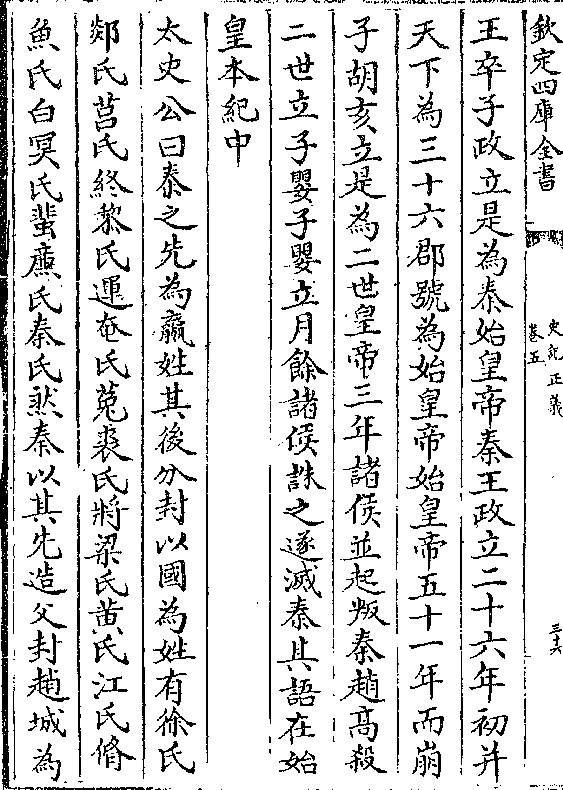 欽定四庫全書
史記正義
卷五
三十六
王卒子政立是為秦始皇帝秦王政立二十六年初并
天下為三十六郡號為始皇帝始皇帝五十一年而崩
子胡亥立是為二世皇帝三年諸侯並起叛秦趙高殺
二世立子嬰子嬰立月餘諸侯誅之遂滅秦其語在始
皇本紀中
太史公曰秦之先為嬴姓其後分封以國為姓有徐氏
郯氏莒氏終黎氏運奄氏菟裘氏將梁氏黄氏江氏脩
魚氏白冥氏蜚廉氏秦氏然秦以其先造父封趙城為